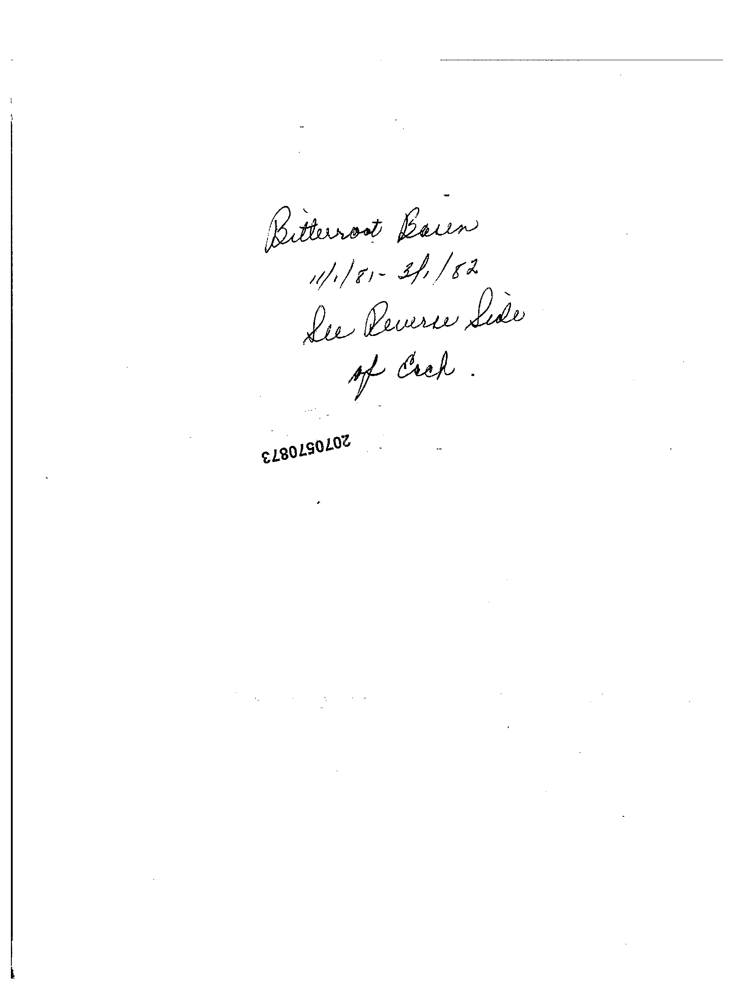 Bitterroot Basin
11/1/81 - 3/1/82
See Reverse Side
of Each.
2070570873